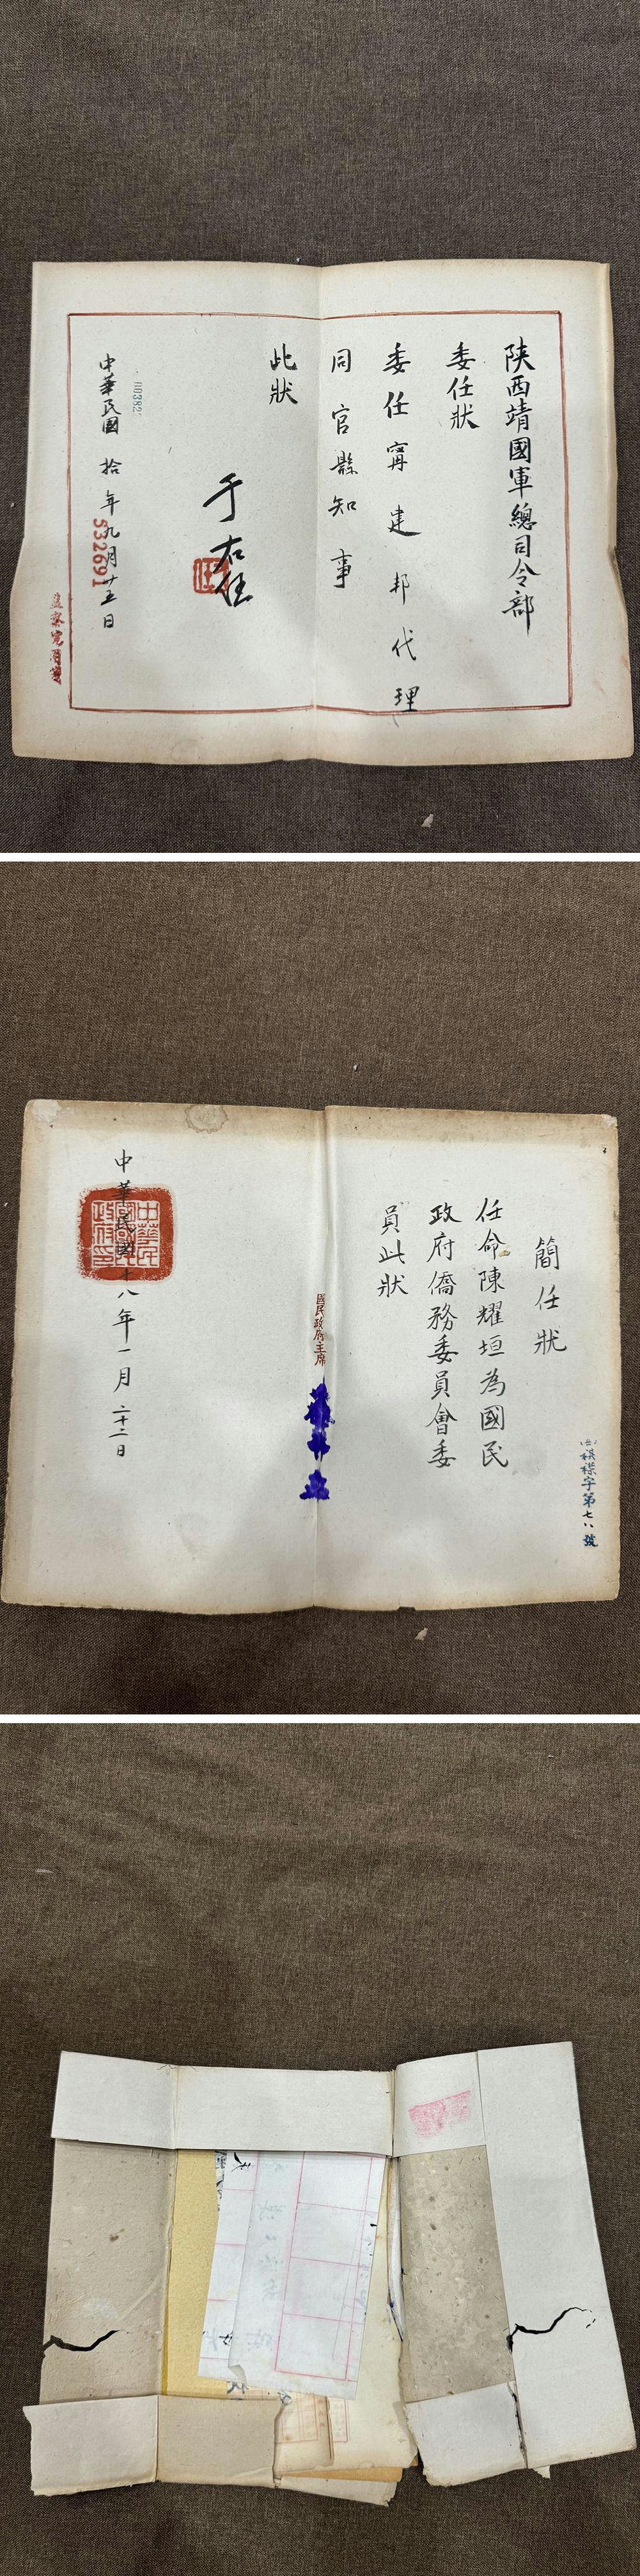 陝西靖國軍總司令部
委任狀
委任甯建邦代理
同官縣知事
此狀
于右任
00382
中華民國拾年九月廿五日
532691
簡任狀
任命陳耀垣為國民
政府僑務委員會委
員此狀
國民政府主席
中華民國十八年一月二十二日
字第七八號